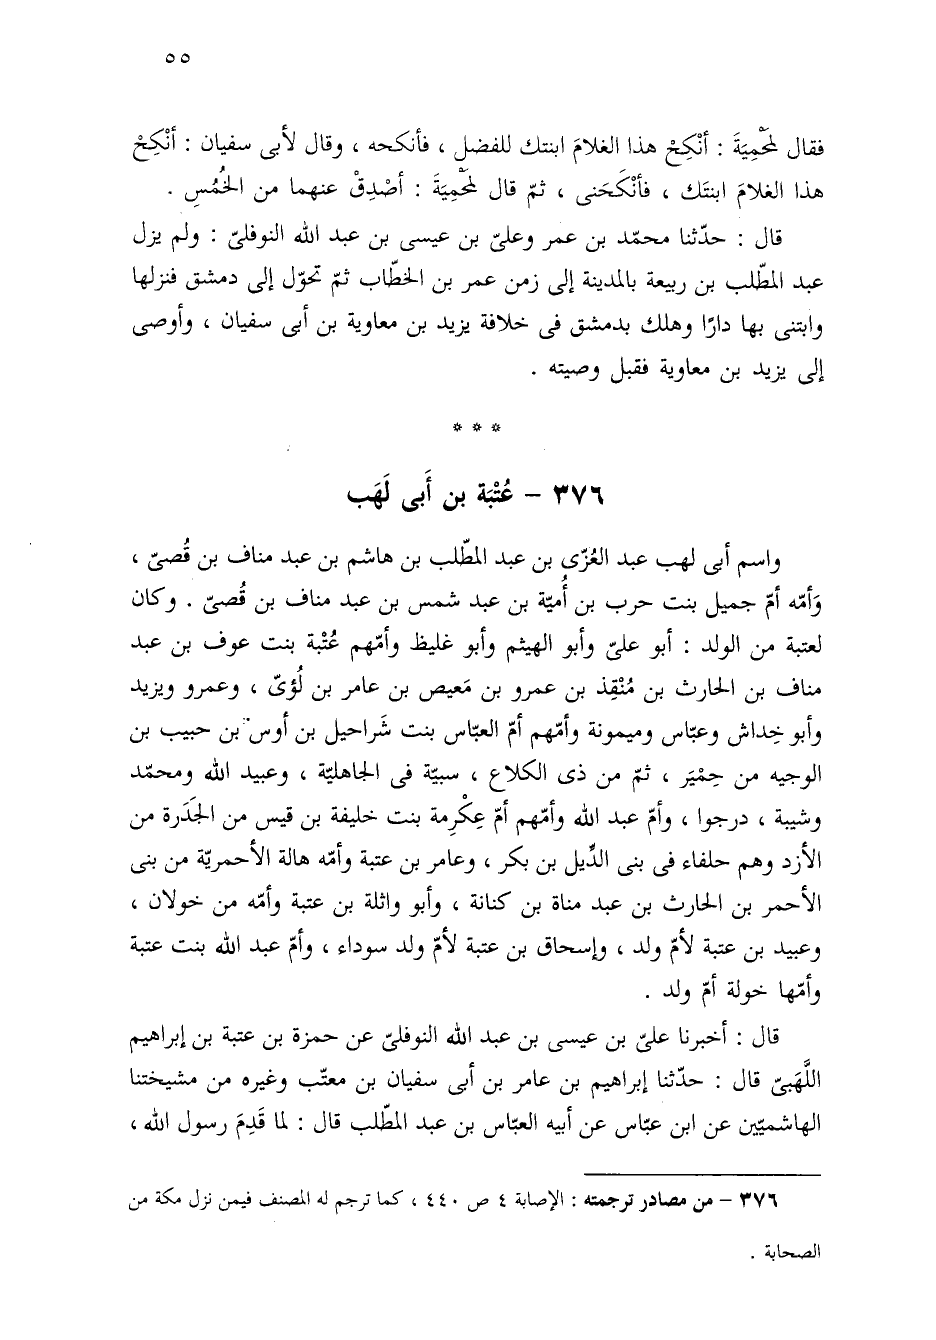 ٥٥
فقال لمَحْمِيَةَ : أَنْكِحْ هذا الغلامَ ابنتك للفضل ، فأنكحه ، وقال لأبى سفيان : أَنْكِحْ
هذا الغلامَ ابنتَك ، فأنْكَحَنى ، ثمّ قال لمَحْمِيَةَ : أصْدِقْ عنهما من الخُمُسِ .
قال : حدّثنا محمّد بن عمر وعلىّ بن عيسى بن عبد الله النوفلىّ : ولم يزل
عبد المطّلب بن ربيعة بالمدينة إلى زمن عمر بن الخطّاب ثمّ تحوّل إلى دمشق فنزلها
وابتنى بها دارًا وهلك بدمشق فى خلافة يزيد بن معاوية بن أبى سفيان ، وأوصى
إلى يزيد بن معاوية فقبل وصيته .
* * *
٣٧٦ – عُتْبَة بن أَبى لَهَب
واسم أبى لهب عبد العُزّى بن عبد المطّلب بن هاشم بن عبد مناف بن قُصىّ ،
وَأمّه أمّ جميل بنت حرب بن أُميّة بن عبد شمس بن عبد مناف بن قُصىّ . وكان
لعتبة من الولد : أبو علىّ وأبو الهيثم وأبو غليظ وأمّهم عُتْبة بنت عوف بن عبد
مناف بن الحارث بن مُنْقِذ بن عمرو بن مَعيص بن عامر بن لُؤىّ ، وعمرو ويزيد
وأبو خِداش وعبّاس وميمونة وأمّهم أمّ العبّاس بنت شَراحيل بن أوس بن حبيب بن
الوجيه من حِمْيَر ، ثمّ من ذى الكلاع ، سبيّة فى الجاهليّة ، وعبيد الله ومحمّد
وشيبة ، درجوا ، وأمّ عبد الله وأمّهم أمّ عِكْرِمة بنت خليفة بن قيس من الجَدَرة من
الأزد وهم حلفاء فى بنى الدِّيل بن بكر ، وعامر بن عتبة وأمّه هالة الأحمريّة من بنى
الأحمر بن الحارث بن عبد مناة بن كنانة ، وأبو واثلة بن عتبة وأمّه من خولان ،
وعبيد بن عتبة لأمّ ولد ، وإسحاق بن عتبة لأمّ ولد سوداء ، وأمّ عبد الله بنت عتبة
وأمّها خولة أمّ ولد .
قال : أخبرنا علىّ بن عيسى بن عبد الله النوفلىّ عن حمزة بن عتبة بن إبراهيم
اللَّهَبىّ قال : حدّثنا إبراهيم بن عامر بن أبى سفيان بن معتّب وغيره من مشيختنا
الهاشميّين عن ابن عبّاس عن أبيه العبّاس بن عبد المطّلب قال : لما قَدِمَ رسول الله ،
٣٧٦ – من مصادر ترجمته : الإصابة ٤ ص ٤٤٠ ، كما ترجم له المصنف فيمن نزل مكة من
الصحابة .